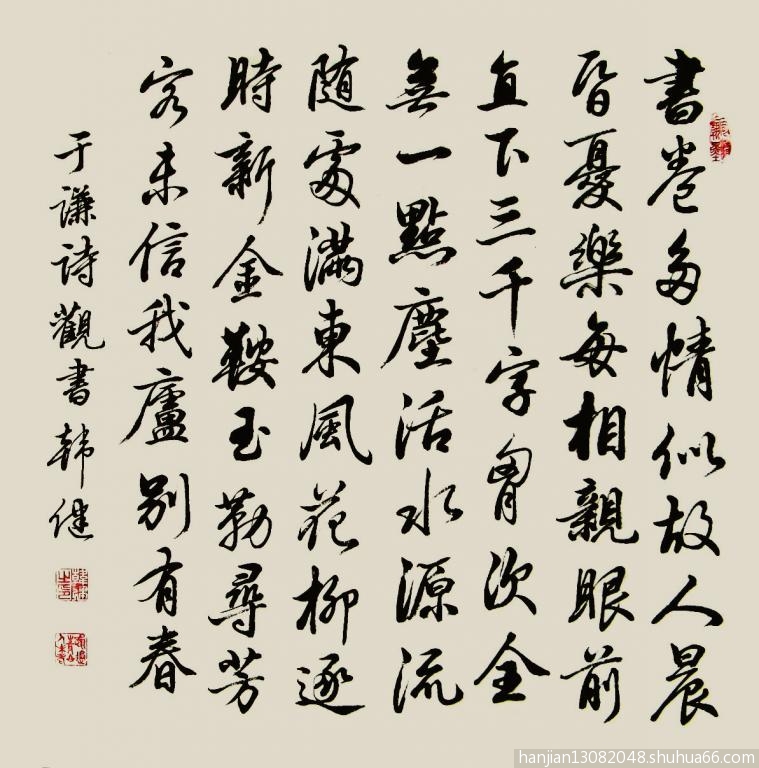 書卷多情似故人晨
昏憂樂每相親眼前
直下三千字胸次全
無一點塵活水源流
随處滿東風花柳逐
時新金鞍玉勒尋芳
客未信我廬別有春
于謙詩觀書韩健
hanjian13082048.shuhua66.com